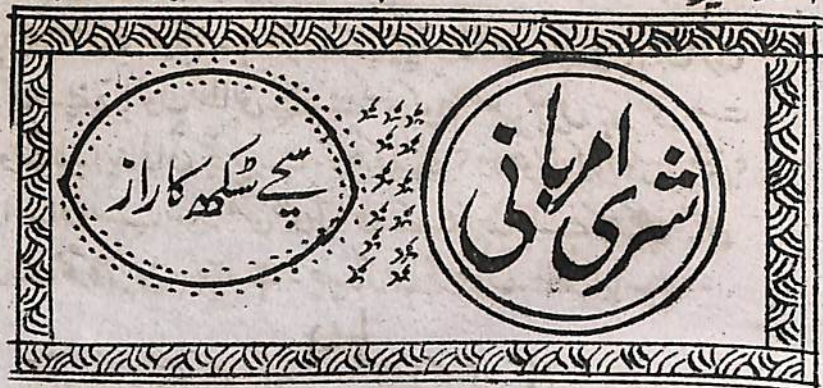 شری امر بانی
سچے سکھ کا راز